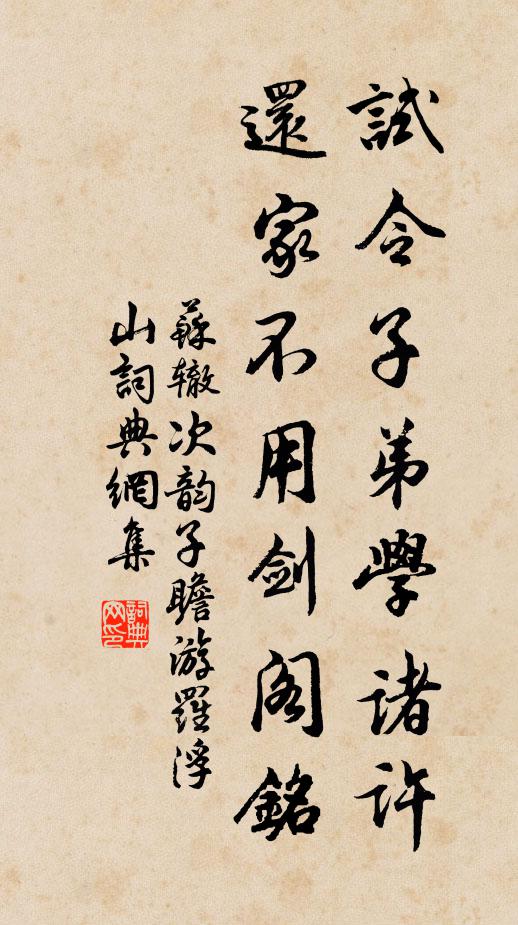 試令子弟學諸許
還家不用劍閣銘
蘇辙次韵子瞻游羅浮
山詞典網集
詞典
网印